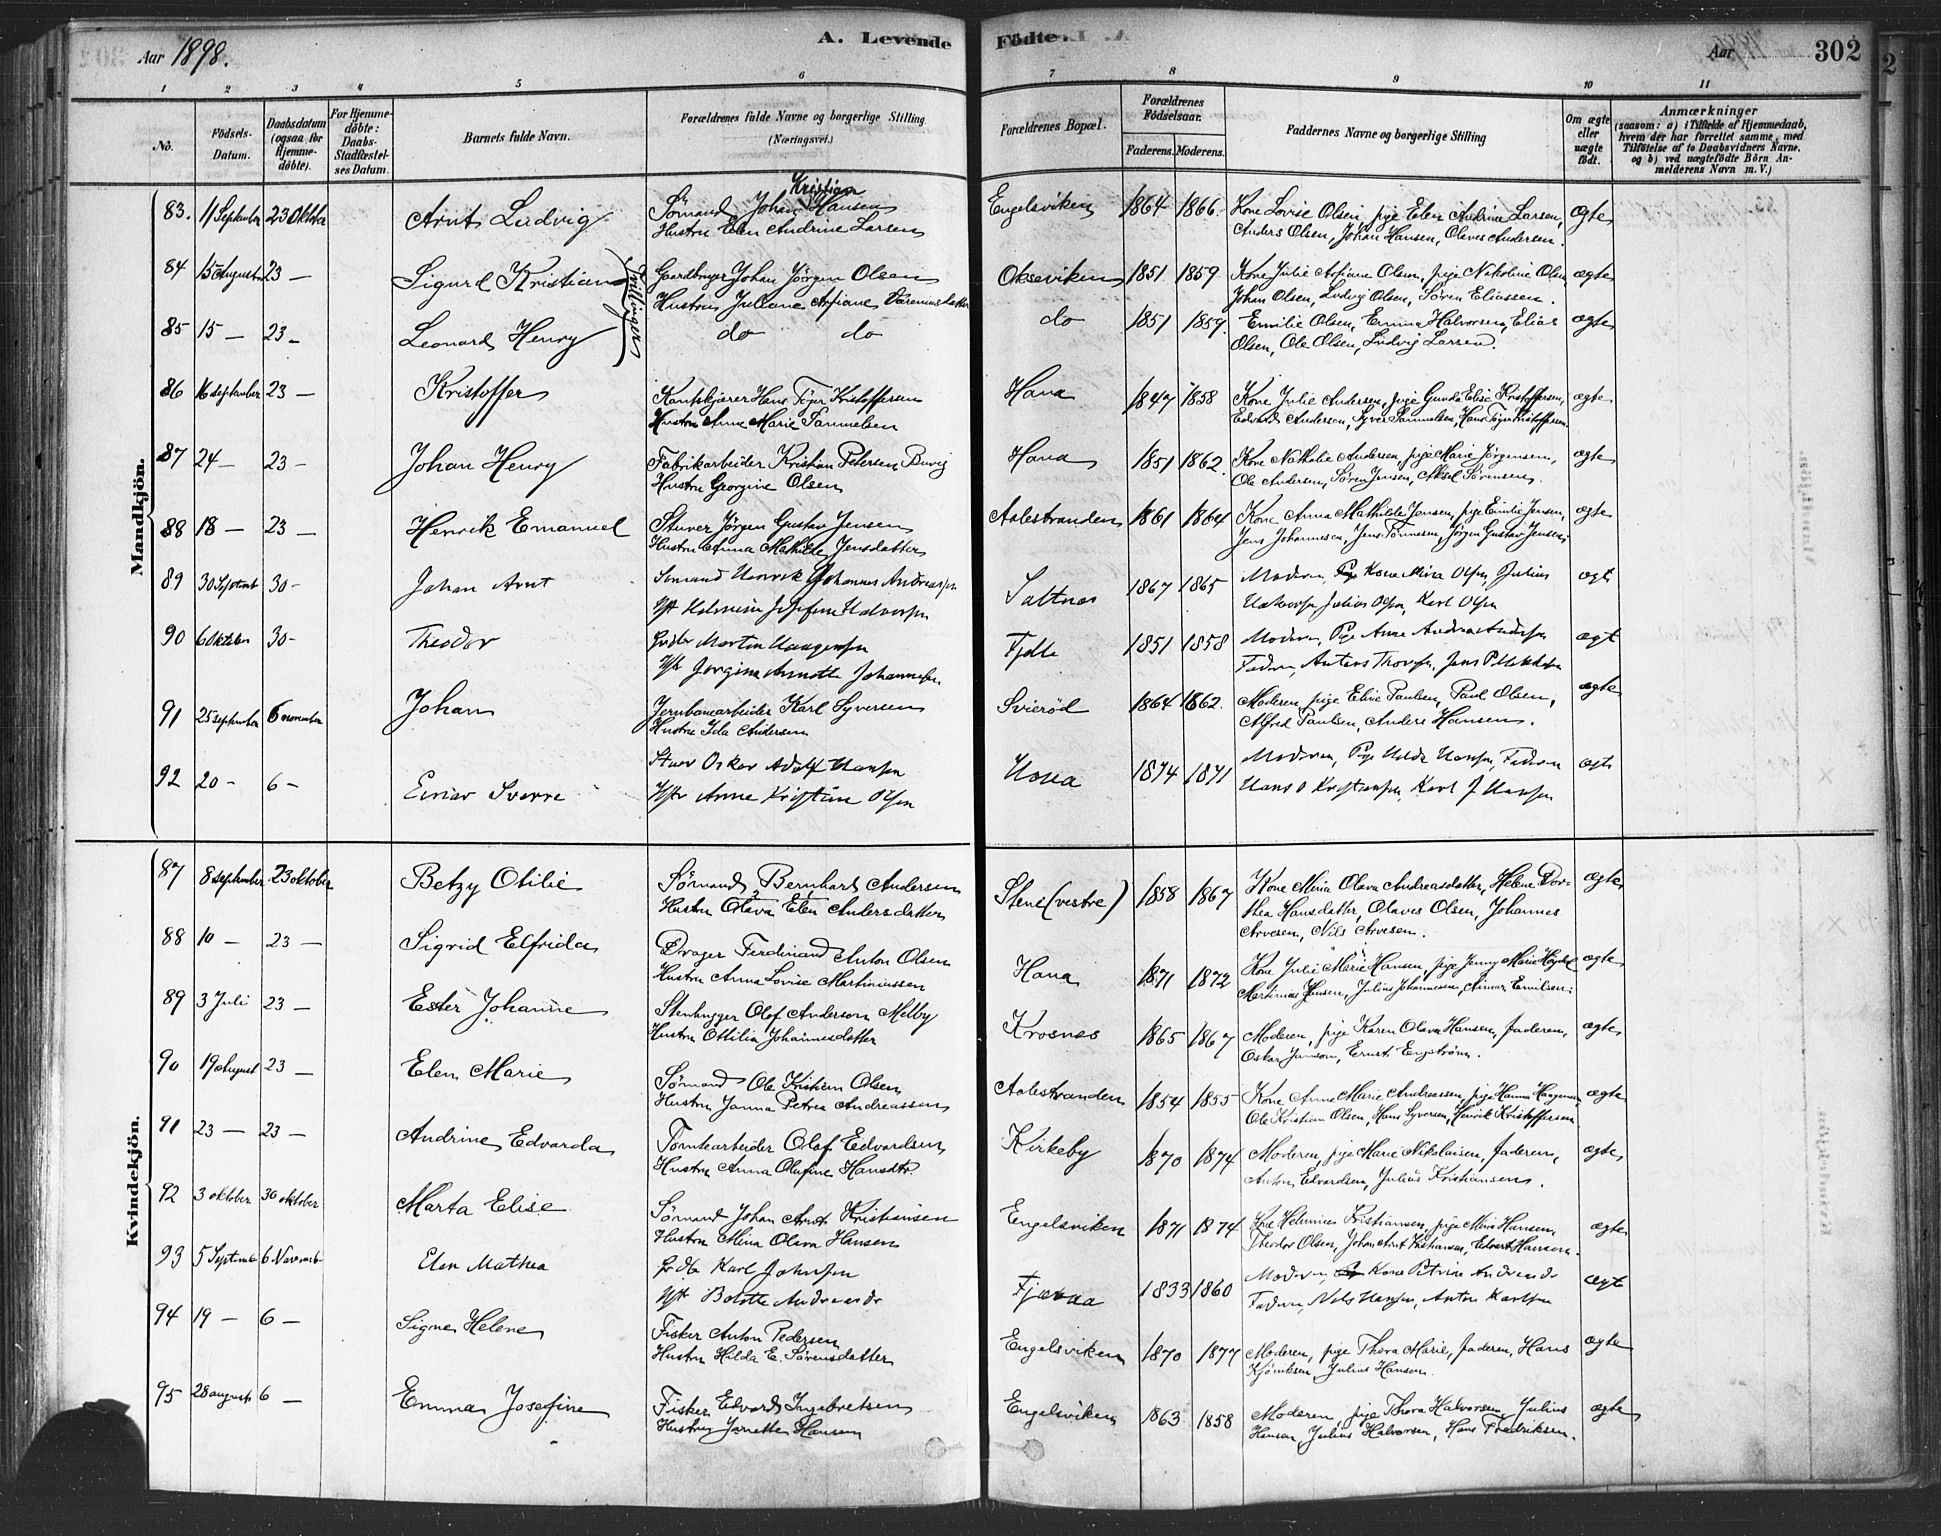 Aar 1898.
A. Levende Födte.
Aar
302
1 2 3 4 5 6 7 8 9 10 11
No.
Födsels-Datum.
Daabsdatum (ogsaa for Hjemme-döbte).
For Hjemme-döbte: Daabs-Stadfæstel-ses Datum.
Barnets fulde Navn.
Forældrenes fulde Navne og borgerlige Stilling (Næringsvei.)
Forældrenes Bopæl.
Forældrenes Födselsaar.
Faderens. Moderens.
Faddernes Navne og borgerlige Stilling
Om ægte eller uægte födt.
Anmærkninger
(saasom: a) i Tilfælde af Hjemmedaab, hvem der har forrettet samme, med Tilföielse af to Daabsvidners Navne, og b) ved uægtefödte Börn An-melderens Navn m. V.)
Mandkjön.
83. 11 September 23 Oktober Arnt Ludvig Sømand Johan Kristian Hansen Engelsviken 1864 1866. Kone Lovise Olsen, pige Elen Andrine Larsen, ægte
Hustru Elen Andrine Larsen Anders Olsen, Johan Hansen, Olaves Andersen.
84 15 August 23 — Sigurd Kristian Gaardbruger Johan Jörgen Olsen Okseviken 1851 1859. Kone Julie Olsen, pige Nikoline Olsen ægte
Tvillinger
Hustru Juliane Johan Olsen, Ludvig Olsen, Sören Eliassen.
85 15 — 23 — Leonard Henry do do do 1851 1859. Emilie Olsen, Emma Halvorsen, Elias ægte
Olsen, Ole Olsen, Ludvig Larsen.
86 16 september 23 — Kristoffer Hans Kristoffersen Hana 1847 1858 Kone Julie Andersen, pige Gunda Elise Kristoffersen, ægte
Hustru Anne Marie Samuelsen Edvard Andersen, Syver Samuelsen, Hans Kristoffersen.
87 24 — 23 — Johan Henry Fabrikarbeider Kristian Petersen Buvig Hana 1851 1862. Kone Nathalie Andersen, pige Marie Jörgensen, ægte
Hustru Georgine Olsen Ole Andersen, Sören Jensen, Aksel Sörensen.
88 18 — 23 — Henrik Emanuel Stuver Jörgen Gustav Jensen Aalestranden 1861 1864 Kone Anna Mathilde Jensen, pige Emilie Jensen, ægte
Hustru Anna Mathilde Jensdatter Jens Johannesen, Jens Tönnesen, Jörgen Gustav Jensen.
89 30 Septemb 30 — Johan Arnt Sömand Henrik Johannes Andreassen Saltnes 1867 1865 Moderen, Kone Mina Olsen, Julius ægte
Halvorsen, Julius Olsen, Karl Olsen
90 6 Oktober 30 — Theodor Morten Haagensen Fjelle 1851 1858 Moderen, Pige Anne Andrea Andersen ægt
Jörgine Annette Johannesen Faderen, Anders Thoresen, Jens P.
91 25 september 6 november Johan Jernbanearbeider Karl Syversen Svieröd 1864 1862. Moderen, pige Elise Paulsen, Paul Olsen, ægte
Hustru Ida Andersen Alfred Paulsen, Anders Hansen.
92 20 — 6 — Einar Sverre Stuer Oskar Adolf Hansen Hona 1874 1871 Moderen, Pige Hulda Hansen, Faderen ægte
Anne Kristine Olsen Hans O Kristiansen, Karl J Hansen
Kvindekjön.
87 8 september 23 oktober Betzy Otilie Sømand Bernhard Andersen Stene (vestre) 1858 1867 Kone Mina Olava Andreasdatter, Helene Dor- ægte
Hustru Olava Elen Andersdatter thea Hansdatter, Olaves Olsen, Johannes
Arvesen, Nils Arvesen.
88 10 — 23 — Sigrid Elfrida Drager Ferdinand Anton Olsen Hana 1871 1872 Kone Julie Marie Hansen, pige Jenny Marie ægte
Hustru Anna Lovise Martiniussen Martinius Hansen, Julius Johannesen, Emilsen.
89 3 Juli 23 — Ester Johanne Stenhugger Olof Anderson Melby Krosnes 1865 1867 Moderen, pige Karen Olava Hansen, faderen, ægte
Hustru Ottilia Johannesdatter Oskar Janson, Ernst Engström.
90 19 August 23 — Elen Marie Sømand Ole Kristian Olsen Aalestranden 1854 1855 Kone Anne Marie Andreassen, pige Hanna ægte
Hustru Janna Petrea Andreassen Ole Kristian Olsen, Hans Syversen, Henrik Kristoffersen
91 23 — 23 — Andrine Edvarda Tomtearbeider Olaf Edvardsen Kirkeby 1870 1874 Moderen, pige Marie Nikolaisen, faderen, ægte
Hustru Anna Olufine Hansdtr. Anton Edvardsen, Julius Kristiansen.
92 3 oktober 30 oktober Marta Elise Sømand Johan Arnt Kristiansen Engelsviken 1871 1874 Kone Helmine Kristiansen, pige Mina Hansen, ægte
Hustru Mina Olava Hansen Theodor Olsen, Johan Arnt Kristiansen, Edvart Hansen.
93 5 September 6 Novemb Elen Mathea Karl Johnsen Fjæraa 1833 1860 Moderen, Kone Petrine ægt
Bolette Faderen, Nils Hansen, Anton Karlsen
94 19 — 6 — Signe Helene Fisker Anton Pedersen Engelsviken 1870 1877 Moderen, pige Thora Marie, faderen, Hans ægte
Hustru Hilda E. Sørensdatter Julius Hansen.
95 28 august 6 — Emma Josefine Fisker Edvard Ingebretsen Engelsviken 1863 1858 Moderen, pige Thora Halvorsen, Julius ægte
Hustru Janette Hansen Hansen, Julius Halvorsen, Hans Fredriksen.